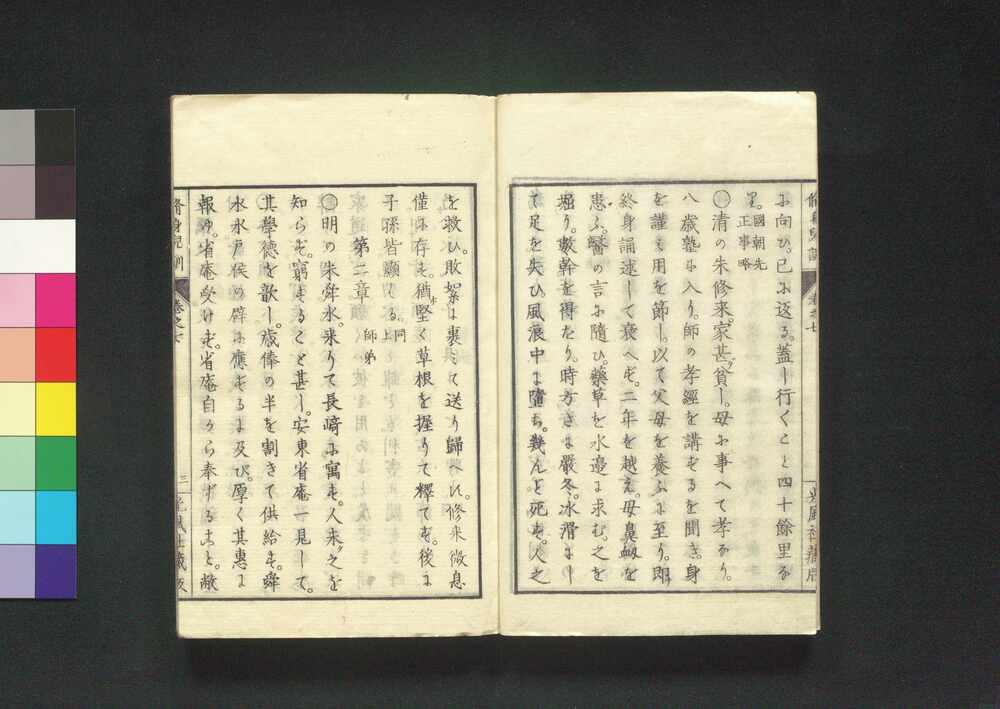 に向ひ。已に返る。蓋し行くこと四十餘里な
り。國朝先
正事略
清の朱修来。家甚ダ貧し。母に事へて孝なり。
八歳塾に入り。師の孝經を講ずるを聞き。身
を謹み用を節し。以て父母を養ふに至り。即
終身誦述して衰へず。二年を越え。母鼻衂を
患ふ。醫の言に隨ひ。藥草を水邉に求む。之を
堀り。數幹を得たり。時方さに嚴冬。氷滑にし
て足を失ひ。風浪中に墮ち。幾んど死す。人之
を救ひ。敗絮に裹みて送り歸へす。修来微息
僅に存す。猶ホ堅く草根を握りて釋てず。後に
子孫皆顯る。同
上
第二章 師弟
明の朱舜水。来りて長崎に寓す。人未ダ之を
知らず。窮すること甚し。安東省庵一見して。
其學德を歆し。歳俸の半を割きて供給す。舜
水水戸侯の辟に應ずるに及び。厚く其惠に
報ゆ。省庵受けず。省庵自から奉ずること。敝
脩身兒訓 卷之七 三 光風社藏版